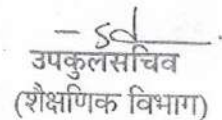 – sd
उपकुलसचिव
(शैक्षणिक विभाग)